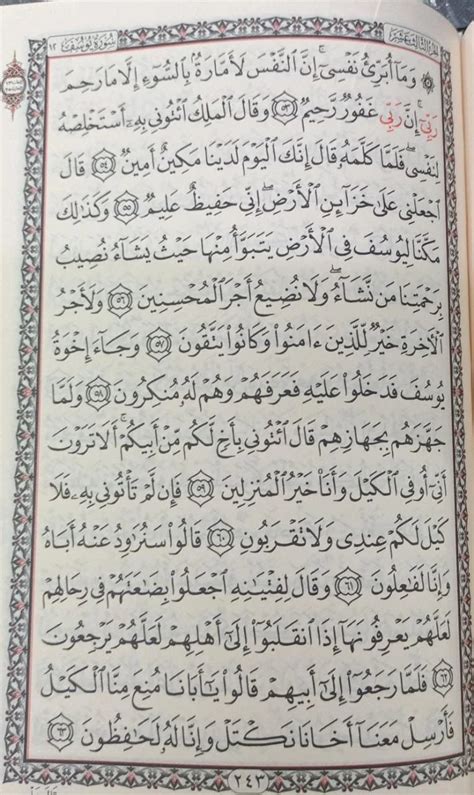 الجزء الثالث عشر
سُورَةُ يُوسُفَ ١٢
وَمَآ أُبَرِّئُ نَفْسِىٓ ۚ إِنَّ ٱلنَّفْسَ لَأَمَّارَةٌۢ بِٱلسُّوٓءِ إِلَّا مَا رَحِمَ
رَبِّىٓ ۚ إِنَّ رَبِّى غَفُورٌ رَّحِيمٌ ٥٣ وَقَالَ ٱلْمَلِكُ ٱئْتُونِى بِهِۦٓ أَسْتَخْلِصْهُ
لِنَفْسِى ۖ فَلَمَّا كَلَّمَهُۥ قَالَ إِنَّكَ ٱلْيَوْمَ لَدَيْنَا مَكِينٌ أَمِينٌ ٥٤ قَالَ
ٱجْعَلْنِى عَلَىٰ خَزَآئِنِ ٱلْأَرْضِ ۖ إِنِّى حَفِيظٌ عَلِيمٌ ٥٥ وَكَذَٰلِكَ
مَكَّنَّا لِيُوسُفَ فِى ٱلْأَرْضِ يَتَبَوَّأُ مِنْهَا حَيْثُ يَشَآءُ ۚ نُصِيبُ
بِرَحْمَتِنَا مَن نَّشَآءُ ۖ وَلَا نُضِيعُ أَجْرَ ٱلْمُحْسِنِينَ ٥٦ وَلَأَجْرُ
ٱلْـَٔاخِرَةِ خَيْرٌ لِّلَّذِينَ ءَامَنُوا۟ وَكَانُوا۟ يَتَّقُونَ ٥٧ وَجَآءَ إِخْوَةُ
يُوسُفَ فَدَخَلُوا۟ عَلَيْهِ فَعَرَفَهُمْ وَهُمْ لَهُۥ مُنكِرُونَ ٥٨ وَلَمَّا
جَهَّزَهُم بِجَهَازِهِمْ قَالَ ٱئْتُونِى بِأَخٍ لَّكُم مِّنْ أَبِيكُمْ ۚ أَلَا تَرَوْنَ
أَنِّىٓ أُوفِى ٱلْكَيْلَ وَأَنَا۠ خَيْرُ ٱلْمُنزِلِينَ ٥٩ فَإِن لَّمْ تَأْتُونِى بِهِۦ فَلَا
كَيْلَ لَكُمْ عِندِى وَلَا تَقْرَبُونِ ٦٠ قَالُوا۟ سَنُرَٰوِدُ عَنْهُ أَبَاهُ
وَإِنَّا لَفَـٰعِلُونَ ٦١ وَقَالَ لِفِتْيَـٰنِهِ ٱجْعَلُوا۟ بِضَـٰعَتَهُمْ فِى رِحَالِهِمْ
لَعَلَّهُمْ يَعْرِفُونَهَآ إِذَا ٱنقَلَبُوٓا۟ إِلَىٰٓ أَهْلِهِمْ لَعَلَّهُمْ يَرْجِعُونَ
٦٢ فَلَمَّا رَجَعُوٓا۟ إِلَىٰٓ أَبِيهِمْ قَالُوا۟ يَـٰٓأَبَانَا مُنِعَ مِنَّا ٱلْكَيْلُ
فَأَرْسِلْ مَعَنَآ أَخَانَا نَكْتَلْ وَإِنَّا لَهُۥ لَحَـٰفِظُونَ ٦٣
٢٤٣